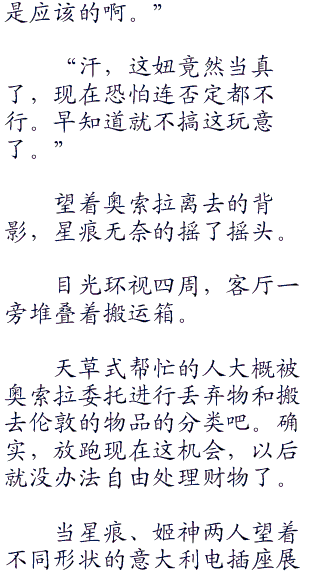 是应该的啊。”
“汗，这妞竟然当真
了，现在恐怕连否定都不
行。早知道就不搞这玩意
了。”
望着奥索拉离去的背
影，星痕无奈的摇了摇头。
目光环视四周，客厅一
旁堆叠着搬运箱。
天草式帮忙的人大概被
奥索拉委托进行丢弃物和搬
去伦敦的物品的分类吧。确
实，放跑现在这机会，以后
就没办法自由处理财物了。
当星痕、姬神两人望着
不同形状的意大利电插座展